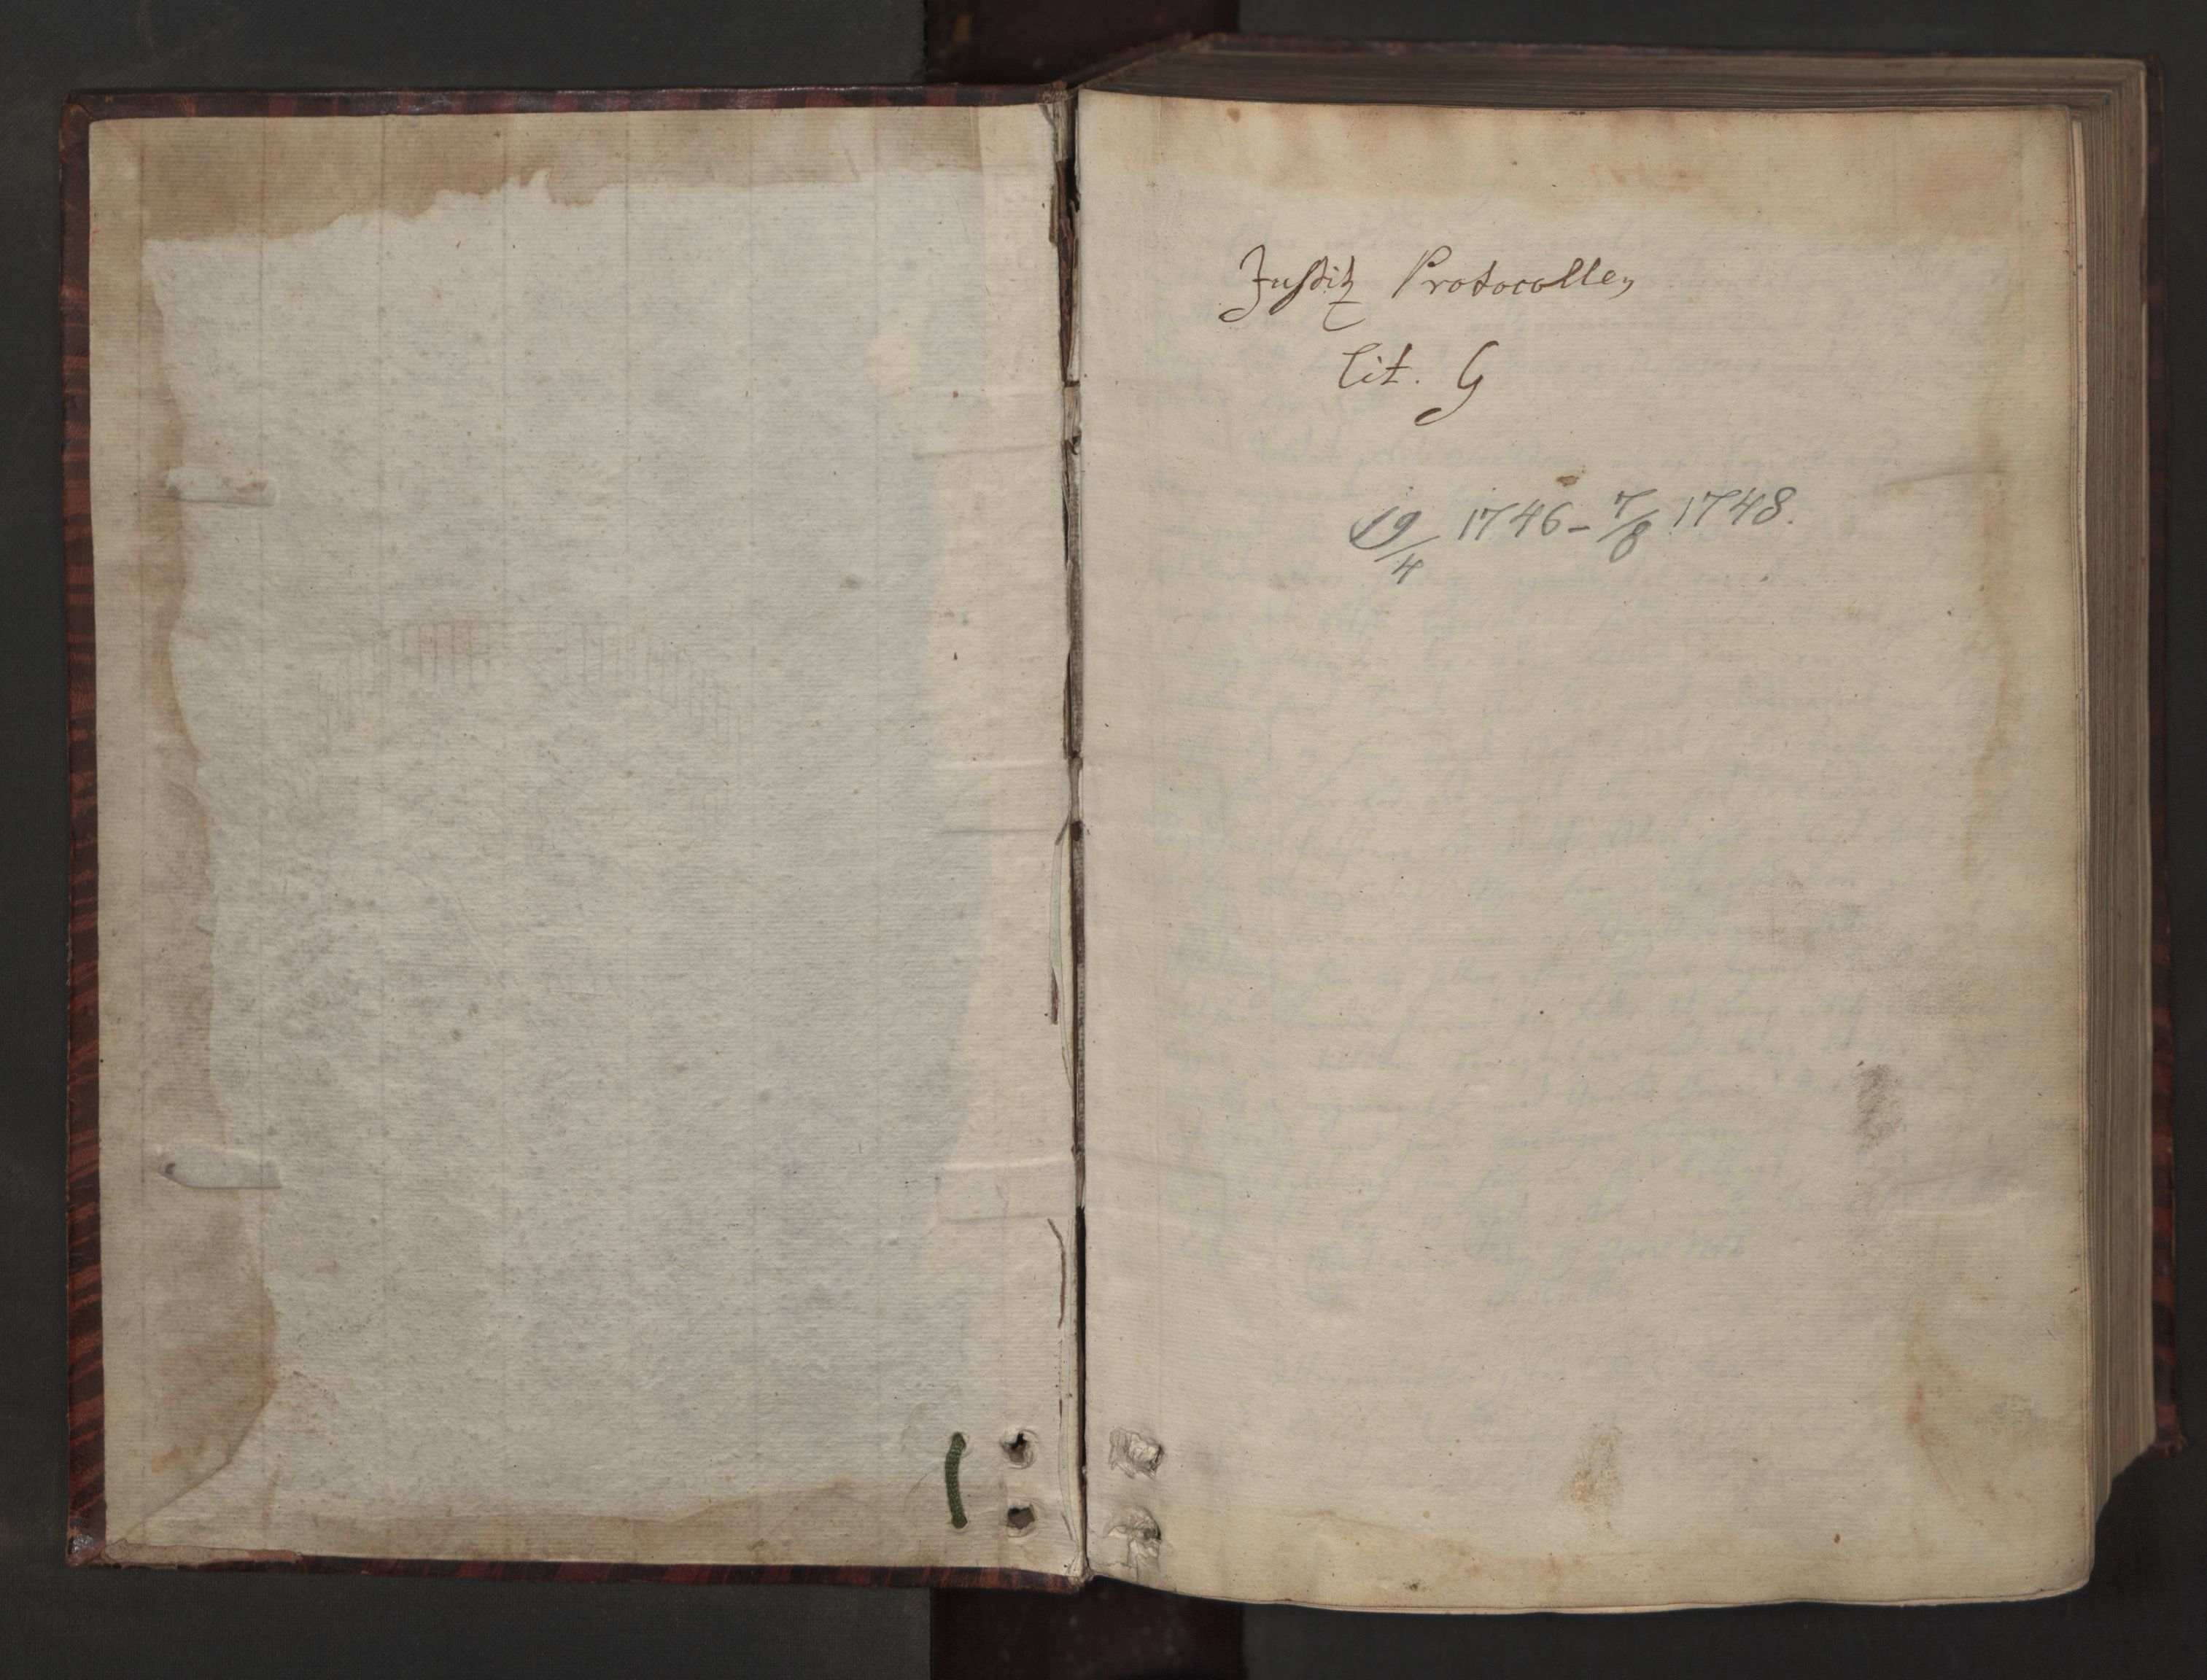 Justitz Protocollen
lit. G
19/4 1746 - 7/8 1748.